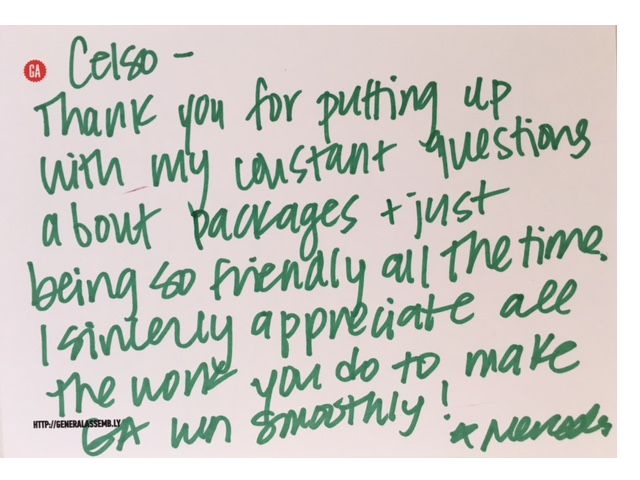 GA Celso -
Thank you for putting up
with my constant questions
about packages + just
being so friendly all the time.
I sincerly appreciate all
the work you do to make
HTTP://GENERALASSEMB.LY
GA run smoothly! * Mercedes